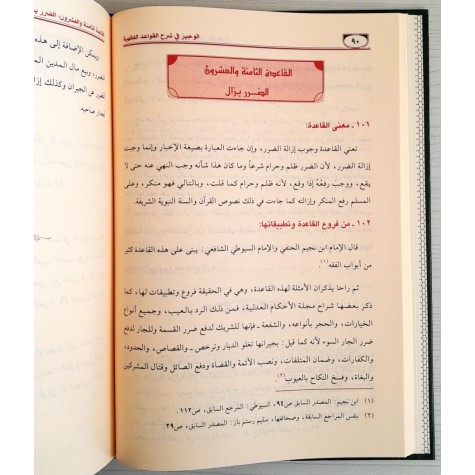 ٩٠
الوجيز في شرح القواعد الفقهية
القاعدة الثامنة والعشرون
الضرر يزال
١٠١ ـ معنى القاعدة:
تعني القاعدة وجوب إزالة الضرر، وإن جاءت العبارة بصيغة الإخبار وإنما وجبت
إزالة الضرر، لأن الضرر ظلم وحرام شرعاً وما كان هذا شأنه وجب النهي عنه حتى لا
يقع، ووجب رفعُهُ إذا وقع، لأنه ظلم وحرام كما قلت، وبالتالي فهو منكر، وعلى
المسلم رفع المنكر وإزالته كما جاءت في ذلك نصوص القرآن والسنة النبوية الشريفة.
١٠٢ ـ من فروع القاعدة وتطبيقاتها:
قال الإمام ابن نجيم الحنفي والإمام السيوطي الشافعي: يبنى على هذه القاعدة كثير
من أبواب الفقه(١).
ثم راحا يذكران الأمثلة لهذه القاعدة، وهي في الحقيقة فروع وتطبيقات لها، كما
ذكر بعضها شراح مجلة الأحكام العدلية، فمن ذلك الرد بالعيب، وجميع أنواع
الخيارات، والحجر بأنواعه، والشفعة ـ فإنها للشريك لدفع ضرر القسمة وللجار لدفع
ضرر الجار السوء لأنه كما قيل: بجيرانها تغلو الديار وترخص ـ والقصاص، والحدود،
والكفارات، وضمان المتلفات، ونصب الأئمة والقضاة ودفع الصائل وقتال المشركين
والبغاة، وفسخ النكاح بالعيوب(٢).
(١) ابن نجيم: المصدر السابق ص٩٤، السيوطي: المرجع السابق، ص١١٢.
(٢) نفس المراجع السابقة، وصحائفها، سليم رستم باز: المصدر السابق، ص٢٩.
الثامنة والعشرون: الضرر
ويمكن الإضافة إلى هذه
وبيع مال المدين
عن الجيران وكذلك إزا
صاحبه.